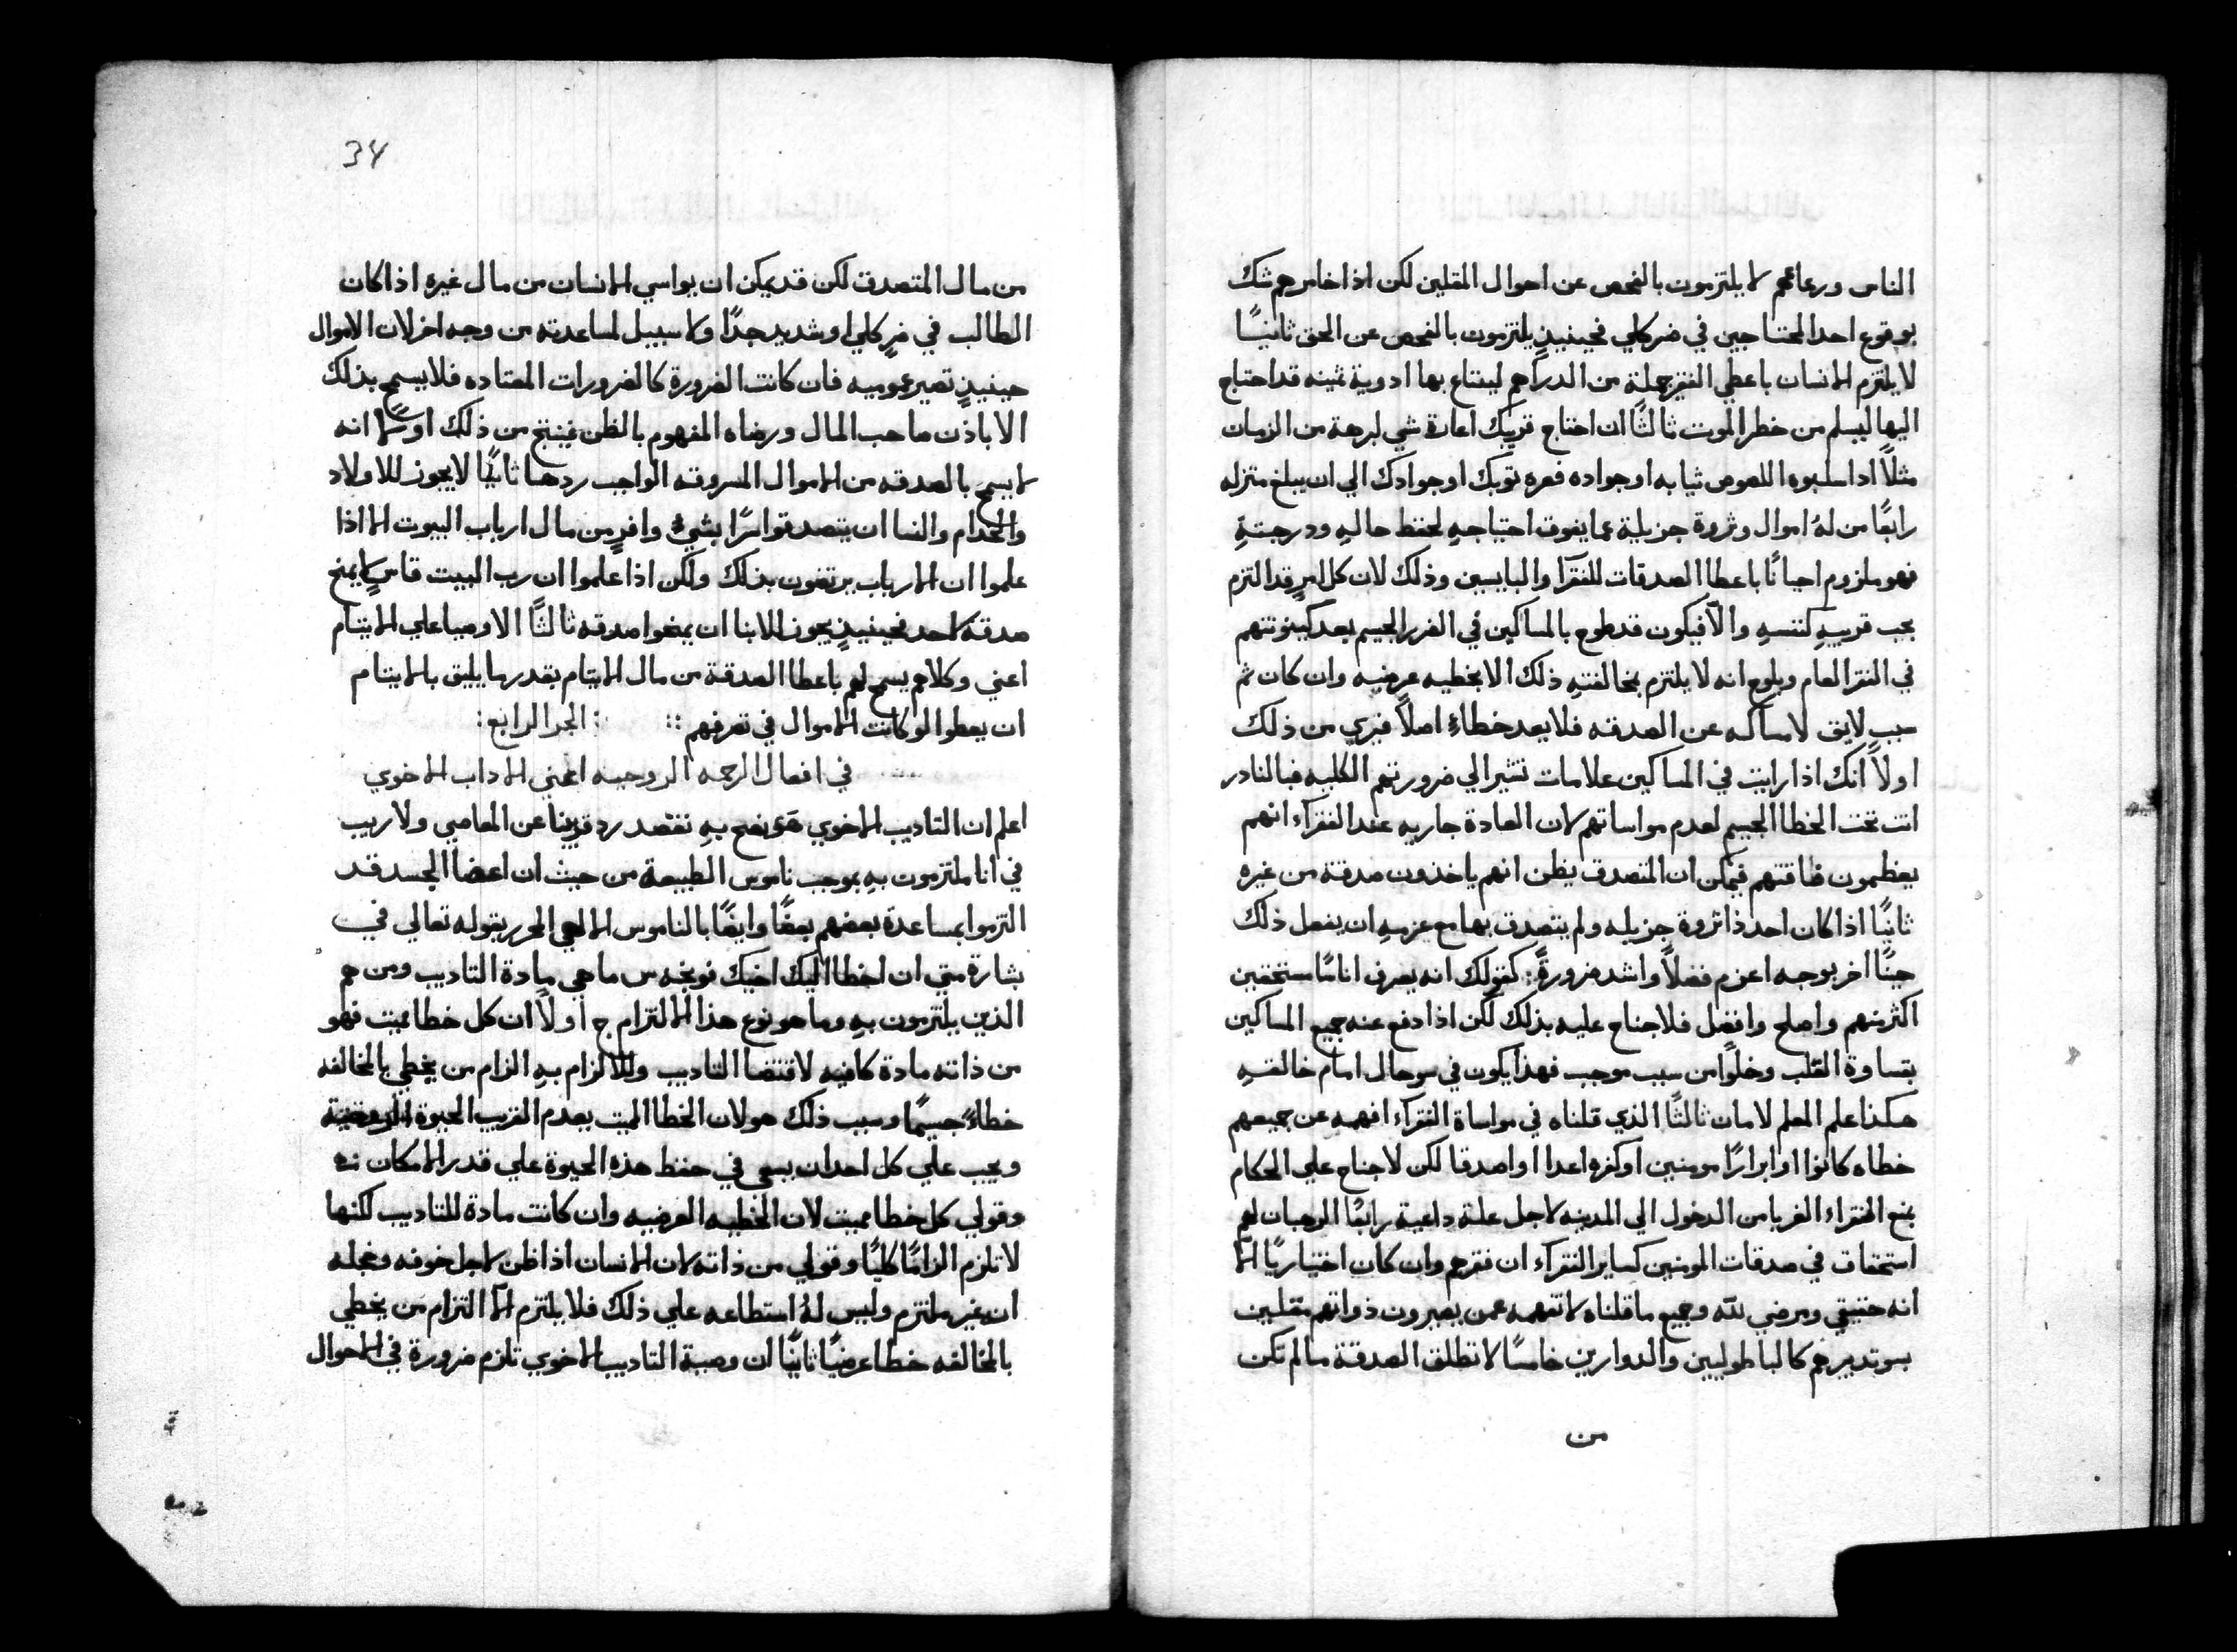 الناس ورعاعهم لا يلتزمون بالفحص عن احوال المقلين لكن اذا خامرهم شك
بوقوع احد المحتاجين في ضر كلي فحينيذٍ يلتزمون بالفحص عن الحق ثانيًا
لا يلتزم الانسان باعطي الفقير جملة من الدراهم ليبتاع بها ادوية ثمينه قد احتاج
اليها ليسلم من خطر الموت ثالثًا ان احتاج قريبك اعارة شي لبرهة من الزمان
مثلاً اذا سلبوه اللصوص ثيابه او جواده فعره ثوبك او جوادك الي ان يبلغ منزله
رابعًا من لهُ اموال وثروة جزيلة عما يفوق احتياجهِ لحفظ حالهِ ودرجتهِ
فهو ملزوم احيانًا باعطا الصدقات للفقرآ والبايسين وذلك لان كل امرٍ قد التزم
بحب قريبهِ كنفسهِ والّا فيكون قد طوح بالمساكين في الضرر الجسيم بعد كينونتهم
في الفقر العام وبلوح انه لا يلتزم بمخالفتهِ ذلك الا بخطيه عرضيه وان كان ثم
سبب لايق لامساكه عن الصدقه فلا يعد خطاءً اصلاً فيري من ذلك
اولاً انك اذا رايت في المساكين علامات تشير الي ضرورتهم الكليه فبالنادر
انت تحت الخطا الجسيم لعدم مواساتهم لان العادة جاريه عند الفقرآء انهم
يعظمون فاقتهم فيمكن ان المتصدق يظن انهم ياخذون صدقة من غيره
ثانيًا اذا كان احد ذا ثروة جزيله ولم يتصدق بها مع عزمهِ ان يفعل ذلك
حينًا اخر بوجه اعزم فضلاً واشد ضرورةً: كقولك انه يعرف اناسًا مستحقين
اكثر منهم واصلح وافضل فلا جناح عليه بذلك لكن اذا دفع عنه جميع المساكين
بقساوة القلب وخلوًا من سبب موجب فهذا يكون في سو حال امام خالقهِ
هكذا علم المعلم لامان ثالثًا الذي قلناه في مواساة الفقرآء افهمه عن جميعهم
خطاه كانوا او ابرارًا مومنين او كفره اعدا او اصدقا لكن لا جناح علي الحكام
بمنع الفقراء الغربا من الدخول الي المدينه لاجل علة داعية رابعًا الرهبان لهم
استحقاق في صدقات المومنين كساير الفقرآء ان فقرهم وان كان اختياريًا الّا
انه حقيقي ومرضي لله وجميع ما قلناه لا تفهمه عمن يصيرون ذواتهم مقلين
بسو تدبيرهم كالباطوليين والدوارين خامسًا لا تطلق الصدقة ما لم تكن
من
34
من مال المتصدق لكن قد يمكن ان يواسي الانسان من مال غيره اذا كان
الطالب في ضرٍ كلي او شديد جدًا ولا سبيل لمساعدته من وجه اخر لان الاموال
حينيذٍ تصير عموميه فان كانت الضرورة كالضرورات المعتاده فلا يسمح بذلك
الا باذن صاحب المال ورضاه المفهوم بالظن فينتج من ذلك اولاً انه
لا يسمح بالصدقه من الاموال المسروقه الواجب ردها ثانيًا لا يجوز للاولاد
والخدام والنسا ان يتصدقوا سرًا بشيءٍ وافرٍ من مال ارباب البيوت الا اذا
علموا ان الارباب يرتضون بذلك ولكن اذا علموا ان رب البيت قاسٍ لا يمنح
صدقة لاحد فحينيذٍ يجوز للابنا ان يمنحوا صدقه ثالثًا الاوصيا علي الايتام
اعني وكلاهم يسمح لهم باعطا الصدقة من مال الايتام بقدر ما يليق بالايتام
ان يعطوا لو كانت الاموال في تصرفهم :: : الجز الرابع :
في افعال الرحمه الروحيه اعني الاداب الاخوي
اعلم ان التاديب الاخوي هو نصح بهِ نقصد رد قريبنا عن المعاصي ولا ريب
في انا ملتزمون بهِ بموجب ناموس الطبيعة من حيث ان اعضا الجسد قد
التزموا بمساعدة بعضهم بعضًا وايضًا بالناموس الالهي المحرر بقوله تعالي في
بشارة متي ان اخطا اليك اخيك فوبخه س ما هي مادة التاديب ومن هم
الذين يلتزمون بهِ وما هو نوع هذا الالتزام ج اولاً ان كل خطا مميت فهو
من ذاته مادة كافيه لاقتضا التاديب وللالزام بهِ الزام من يخطي بالمخالفه
خطاءً جسيمًا وسبب ذلك هو لان الخطا المميت يعدم القريب الحيوة الروحية
ويجب علي كل احد ان يسعي في حفظ هذه الحيوة علي قدر الامكان
وقولي كل خطا مميت لان الخطيه العرضيه وان كانت مادة للتاديب لكنها
لا تلزم الزامًا كليًا وقولي من ذاته لان الانسان اذا ظن لاجل خوفه وخجله
ان غير ملتزم وليس لهُ استطاعه علي ذلك فلا يلتزم الّا التزام من يخطي
بالمخالفه خطا عرضيًا ثانيًا ان وصية التاديب الاخوي تلزم ضرورة في الاحوال